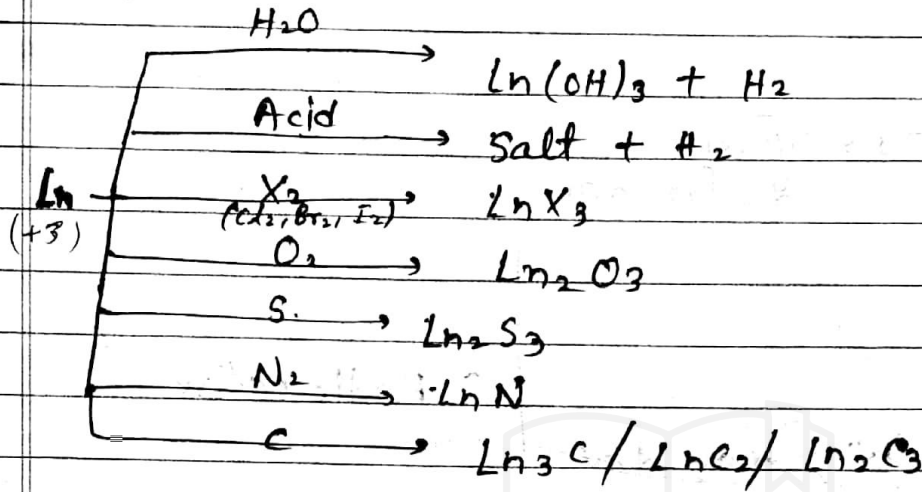 H2O
Ln(OH)3 + H2
Acid
Salt + H2
Ln
(+3)
X2
(Cl2, Br2, I2)
LnX3
O2
Ln2O3
S.
Ln2S3
N2
LnN
C
Ln3C / LnC2 / Ln2C3